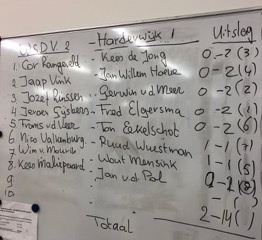 DSDV 2 - Harderwijk 1 Uitslag
1. Cor Rongeveld - Kees de Jong 0-2 (3)
2. Jaap Vink - Jan Willem 0-2 (4)
3. Jozef - Gerwin v.d. Meer 0-2 (2)
4. Jeroen Sijbern - Fred Elgersma 0-2 (1)
5. Frans vd Veer - Ton 0-2 (6)
6. Nico Valkenburg - Ruud Wuestman 1-1 (7)
7. Wim v. Mourik - Wout Mensink 1-1 (5)
8. Kees Maliepaard - Jan v.d. Pol 0-2 (8)
9
10
Totaal 2-14 ( )